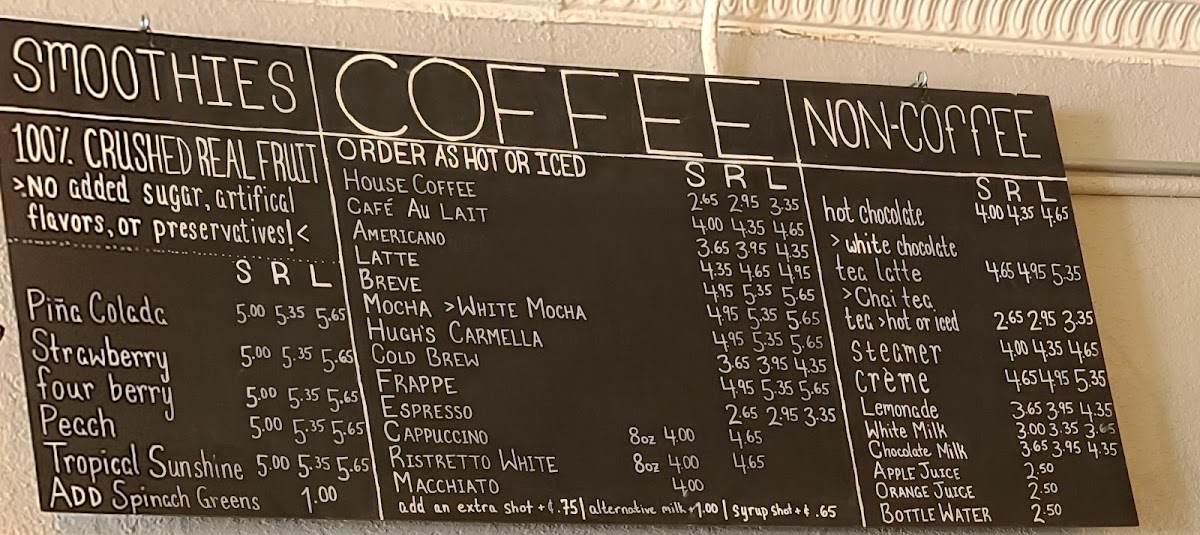 SMOOTHIES
100% CRUSHED REAL FRUIT
>NO added sugar, artifical
flavors, or preservatives!<
S R L
Piña Colada 5.00 5.35 5.65
Strawberry 5.00 5.35 5.65
four berry 5.00 5.35 5.65
Peach 5.00 5.35 5.65
Tropical Sunshine 5.00 5.35 5.65
ADD Spinach Greens 1.00
COFFEE
ORDER AS HOT OR ICED
S R L
HOUSE COFFEE 2.65 2.95 3.35
CAFÉ AU LAIT 4.00 4.35 4.65
AMERICANO 3.65 3.95 4.35
LATTE 4.35 4.65 4.95
BREVE 4.95 5.35 5.65
MOCHA >WHITE MOCHA 4.95 5.35 5.65
HUGH'S CARMELLA 4.95 5.35 5.65
COLD BREW 3.65 3.95 4.35
FRAPPE 4.95 5.35 5.65
ESPRESSO 2.65 2.95 3.35
CAPPUCCINO 8oz 4.00 4.65
RISTRETTO WHITE 8oz 4.00 4.65
MACCHIATO 4.00
add an extra shot +¢.75| alternative milk +1.00 | syrup shot +¢ .65
NON-COFFEE
S R L
hot chocolate 4.00 4.35 4.65
>white chocolate
tea latte 4.65 4.95 5.35
>Chai tea
tea >hot or iced 2.65 2.95 3.35
steamer 4.00 4.35 4.65
crème 4.65 4.95 5.35
Lemonade 3.65 3.95 4.35
White Milk 3.00 3.35 3.65
Chocolate Milk 3.65 3.95 4.35
APPLE JUICE 2.50
ORANGE JUICE 2.50
BOTTLE WATER 2.50